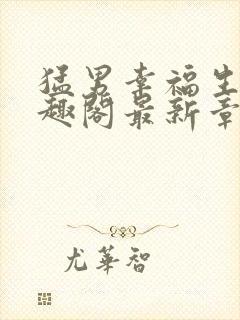 猛男幸福生
趣阁最新章
尤華智